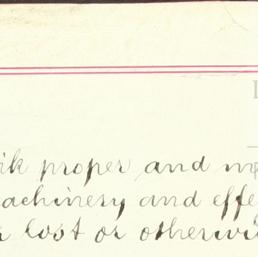 proper and
machinery and
lost or otherwi